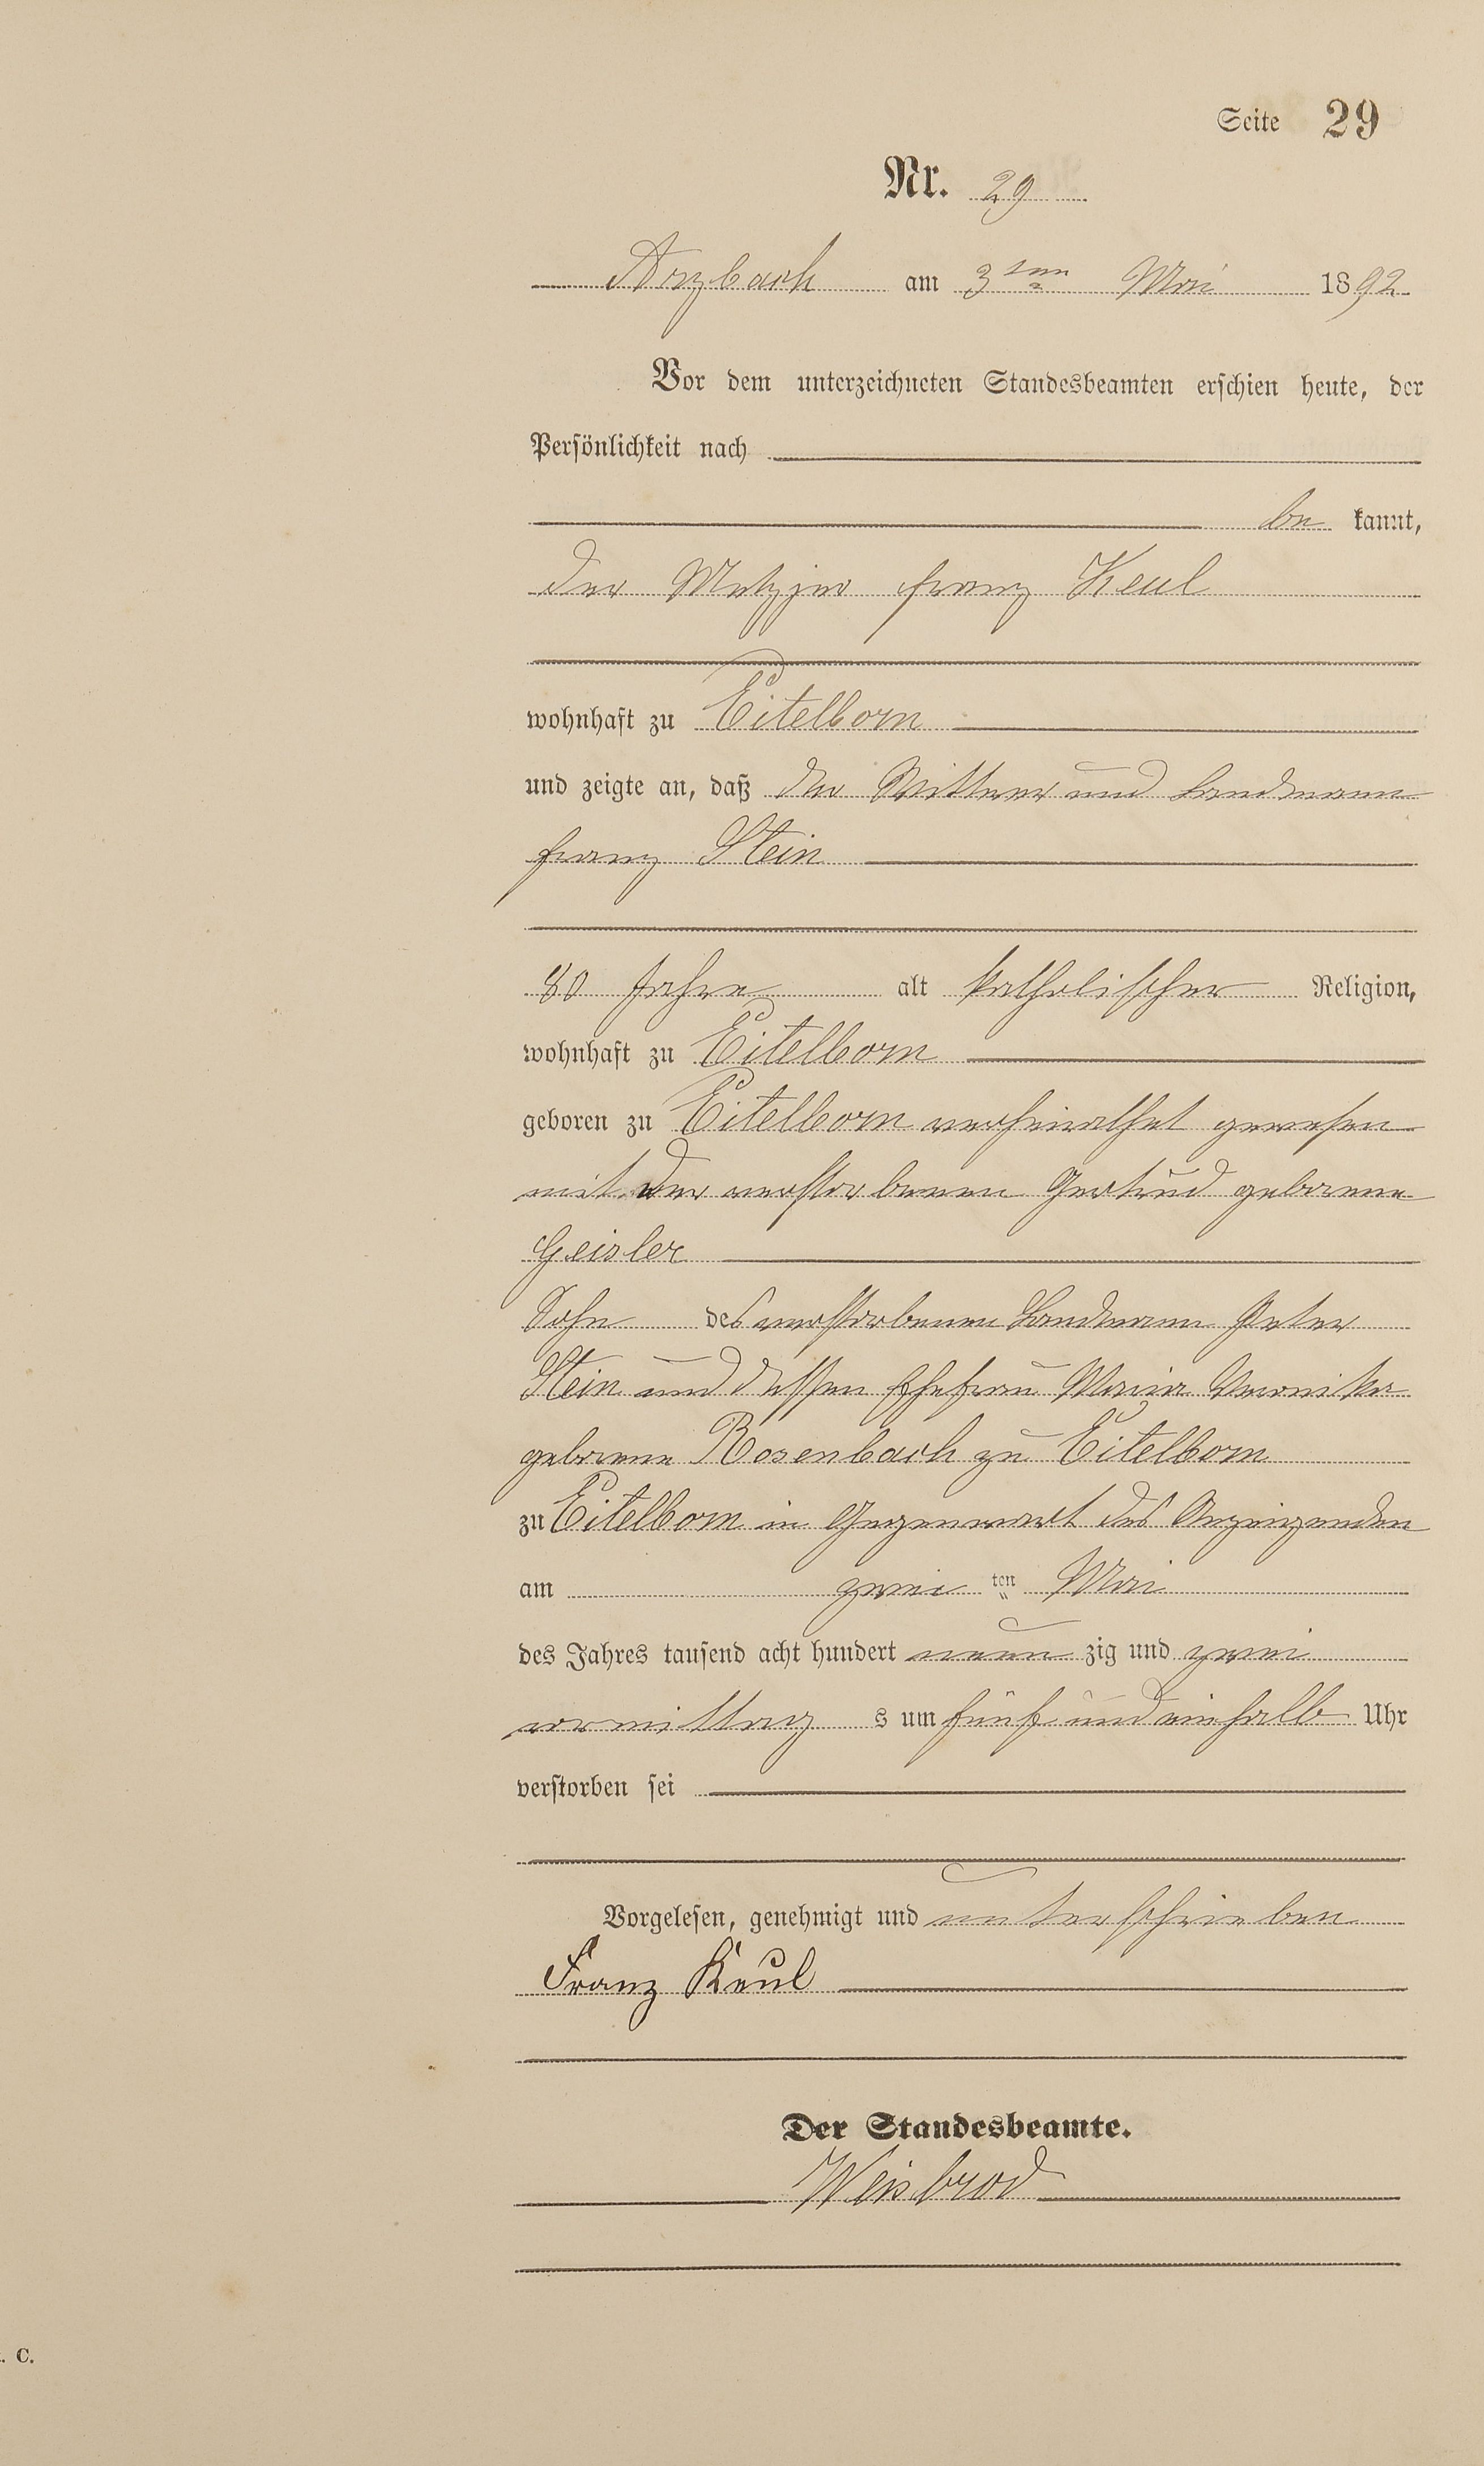 Seite 29
Nr. 29
Arzbach am 3ten Mai 1892
Vor dem unterzeichneten Standesbeamten erschien heute, der
Persönlichkeit nach
be kannt,
der Metzjer Franz Keul
wohnhaft zu Eitelborn
und zeigte an, daß der Wittwer und Landmann
Franz Stein
80 Jahre alt katholischer Religion,
wohnhaft zu Eitelborn
geboren zu Eitelborn verheirathet gewesen
mit der verstorbenen Gertrud geborene
Geisler
Sohn des verstorbenen Landmann Peter
Stein und dessen Ehefrau Maria Veronika
geborene Rosenbach zu Eitelborn
zu Eitelborn in Gegenwart des Anzeigenden
am zwei ten Mai
des Jahres tausend acht hundert neun zig und zwei
vormittag s um fünf und ein halb Uhr
verstorben sei
Vorgelesen, genehmigt und unterschrieben
Franz Keul
Der Standesbeamte.
Weisbrod
. C.